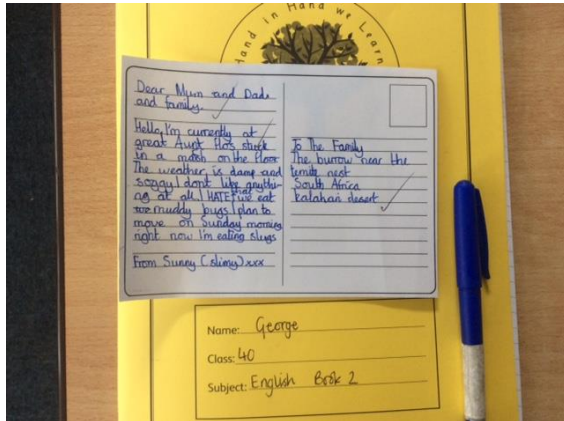 Hand in Hand we Learn
Dear Mum and Dad
and family.
Hello, I'm currently at
great Aunt Flo's stuck
in a marsh on the floor
The weather is damp and
soggy I dont like anythi-
ng at all I HATE that we eat
muddy bugs I plan to
move on Sunday morning
right now I'm eating slugs
From Sunny (slimy) xxx
To The Family
The burrow near the
temite nest
South Africa
kalahari desert
Name: George
Class: 40
Subject: English Book 2